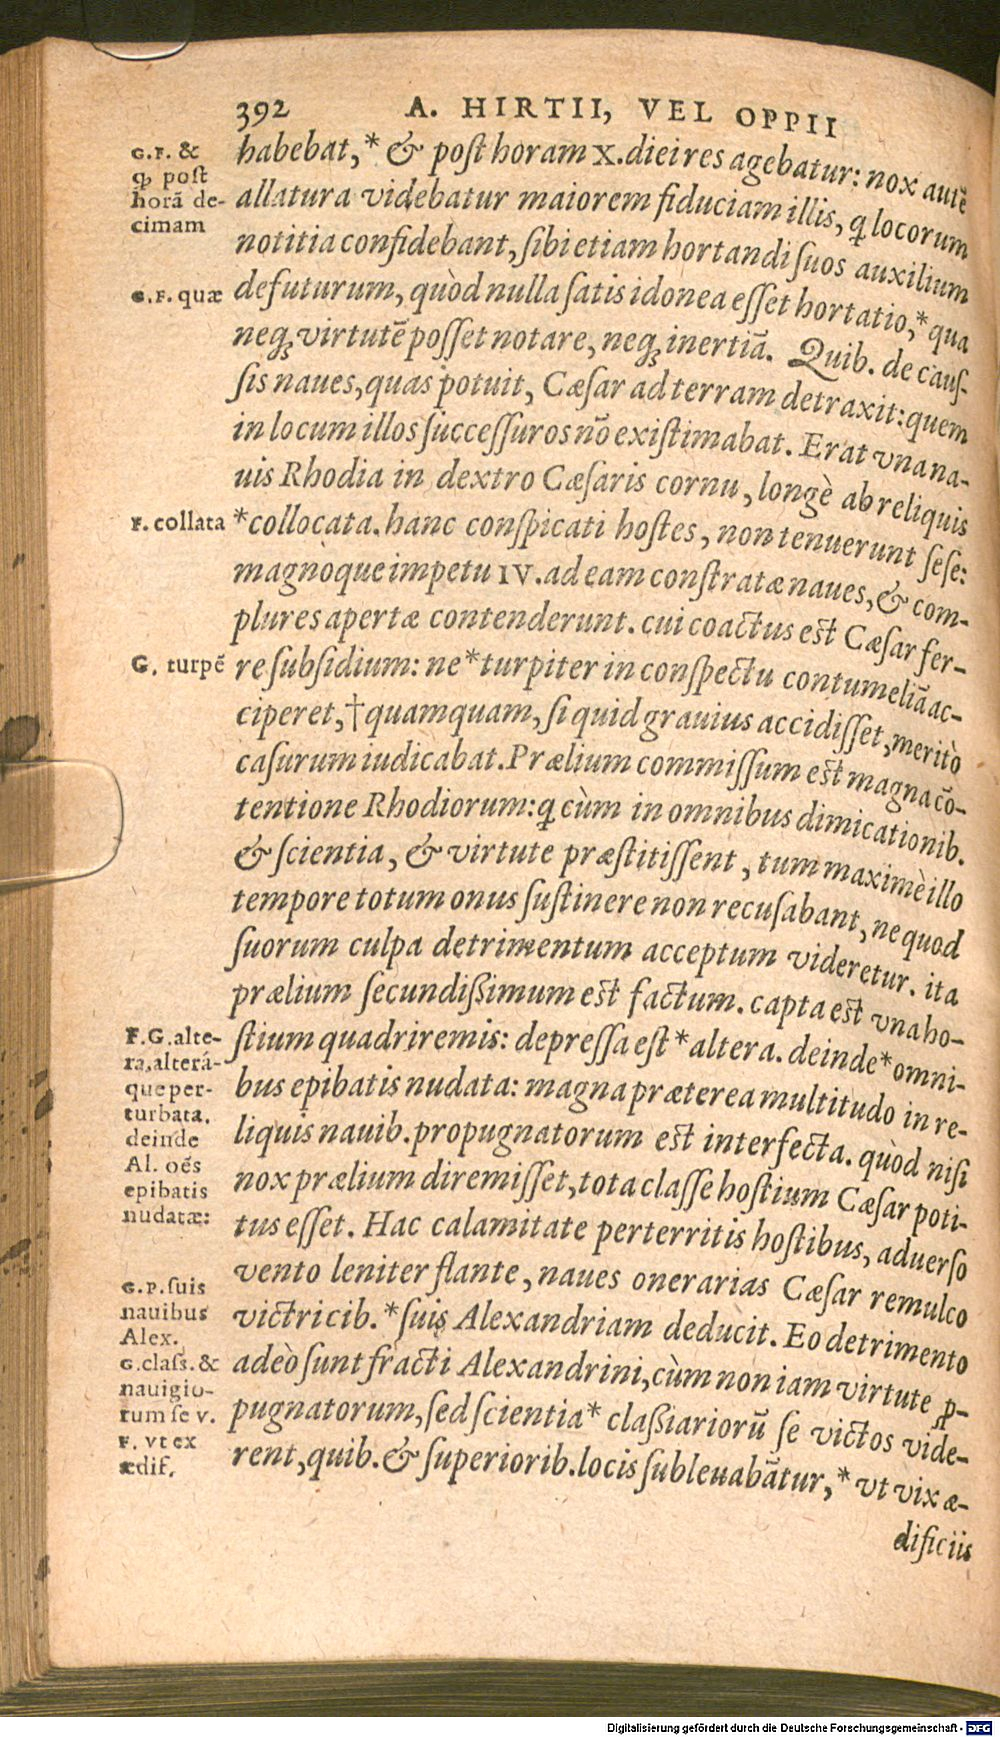 392 A. HIRTII, VEL OPPII
G.F. &
ꝙ post
horã de-
cimam
G.F. quæ
F. collata
G. turpẽ
F.G. alte-
ra, alterá-
que per-
turbata.
deinde
Al. oẽs
epibatis
nudatæ:
G.P. suis
nauibus
Alex.
G. class. &
nauigio-
rum se v.
F. vt ex
ædif.
habebat,* & post horam X. diei res agebatur: nox autẽ
allatura videbatur maiorem fiduciam illis, q̃ locorum
notitia confidebant, sibi etiam hortandi suos auxilium
defuturum, quòd nulla satis idonea esset hortatio,* qua
neq; virtutẽ posset notare, neq; inertiã. Quib. de caus-
sis naues, quas potuit, Cæsar ad terram detraxit: quem
in locum illos successuros nõ existimabat. Erat vna na-
uis Rhodia in dextro Cæsaris cornu, longè ab reliquis
*collocata. hanc conspicati hostes, non tenuerunt sese:
magnoque impetu IV. ad eam constratæ naues, & com-
plures apertæ contenderunt. cui coactus est Cæsar fer-
re subsidium: ne* turpiter in conspectu contumeliã ac-
ciperet,† quamquam, si quid grauius accidisset, meritò
casurum iudicabat. Prælium commissum est magna cõ-
tentione Rhodiorum: q̃ cùm in omnibus dimicationib.
& scientia, & virtute præstitissent, tum maximè illo
tempore totum onus sustinere non recusabant, ne quod
suorum culpa detrimentum acceptum videretur. ita
prælium secundißimum est factum. capta est vna ho-
stium quadriremis: depressa est* altera. deinde* omni-
bus epibatis nudata: magna præterea multitudo in re-
liquis nauib. propugnatorum est interfecta. quòd nisi
nox prælium diremisset, tota classe hostium Cæsar poti-
tus esset. Hac calamitate perterritis hostibus, aduerso
vento leniter flante, naues onerarias Cæsar remulco
victricib.* suis Alexandriam deducit. Eo detrimento
adeò sunt fracti Alexandrini, cùm non iam virtute ꝓ-
pugnatorum, sed scientia* claßiariorũ se victos vide-
rent, quib. & superiorib. locis subleuabãtur,* vt vix æ-
dificiis
Digitalisierung gefördert durch die Deutsche Forschungsgemeinschaft - DFG